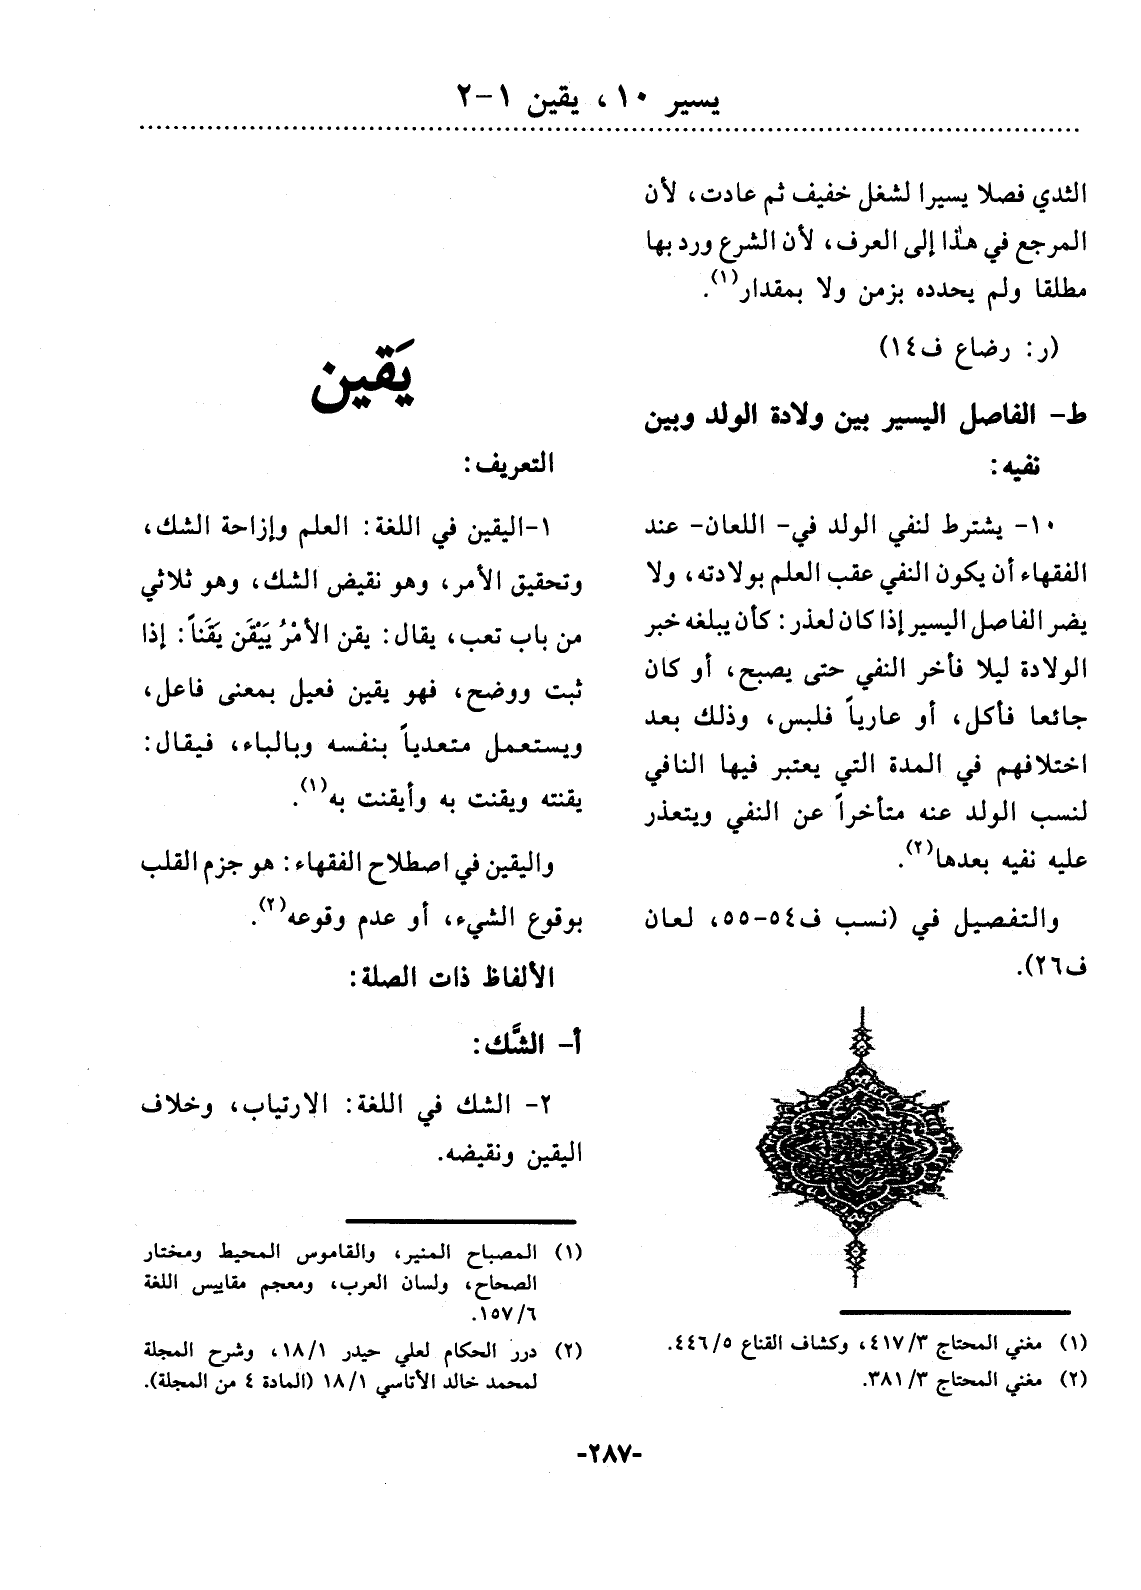 يسير ١٠، يقين ١-٢
الثدي فصلا يسيرا لشغل خفيف ثم عادت، لأن
المرجع في هذا إلى العرف، لأن الشرع ورد بها
مطلقا ولم يحدده بزمن ولا بمقدار(١).
(ر: رضاع ف١٤)
ط- الفاصل اليسير بين ولادة الولد وبين
نفيه:
١٠- يشترط لنفي الولد في- اللعان- عند
الفقهاء أن يكون النفي عقب العلم بولادته، ولا
يضر الفاصل اليسير إذا كان لعذر: كأن يبلغه خبر
الولادة ليلا فأخر النفي حتى يصبح، أو كان
جائعا فأكل، أو عارياً فلبس، وذلك بعد
اختلافهم في المدة التي يعتبر فيها النافي
لنسب الولد عنه متأخراً عن النفي ويتعذر
عليه نفيه بعدها(٢).
والتفصيل في (نسب ف٥٤-٥٥، لعان
ف٢٦).
(١) مغني المحتاج ٤١٧/٣، وكشاف القناع ٤٤٦/٥.
(٢) مغني المحتاج ٣٨١/٣.
يَقين
التعريف:
١-اليقين في اللغة: العلم وإزاحة الشك،
وتحقيق الأمر، وهو نقيض الشك، وهو ثلاثي
من باب تعب، يقال: يقن الأمْرُ يَيْقَن يَقَناً: إذا
ثبت ووضح، فهو يقين فعيل بمعنى فاعل،
ويستعمل متعدياً بنفسه وبالباء، فيقال:
يقنته ويقنت به وأيقنت به(١).
واليقين في اصطلاح الفقهاء: هو جزم القلب
بوقوع الشيء، أو عدم وقوعه(٢).
الألفاظ ذات الصلة:
أ- الشَّك:
٢- الشك في اللغة: الارتياب، وخلاف
اليقين ونقيضه.
(١) المصباح المنير، والقاموس المحيط ومختار
الصحاح، ولسان العرب، ومعجم مقاييس اللغة
١٥٧/٦.
(٢) درر الحكام لعلي حيدر ١٨/١، وشرح المجلة
لمحمد خالد الأتاسي ١٨/١ (المادة ٤ من المجلة).
-٢٨٧-